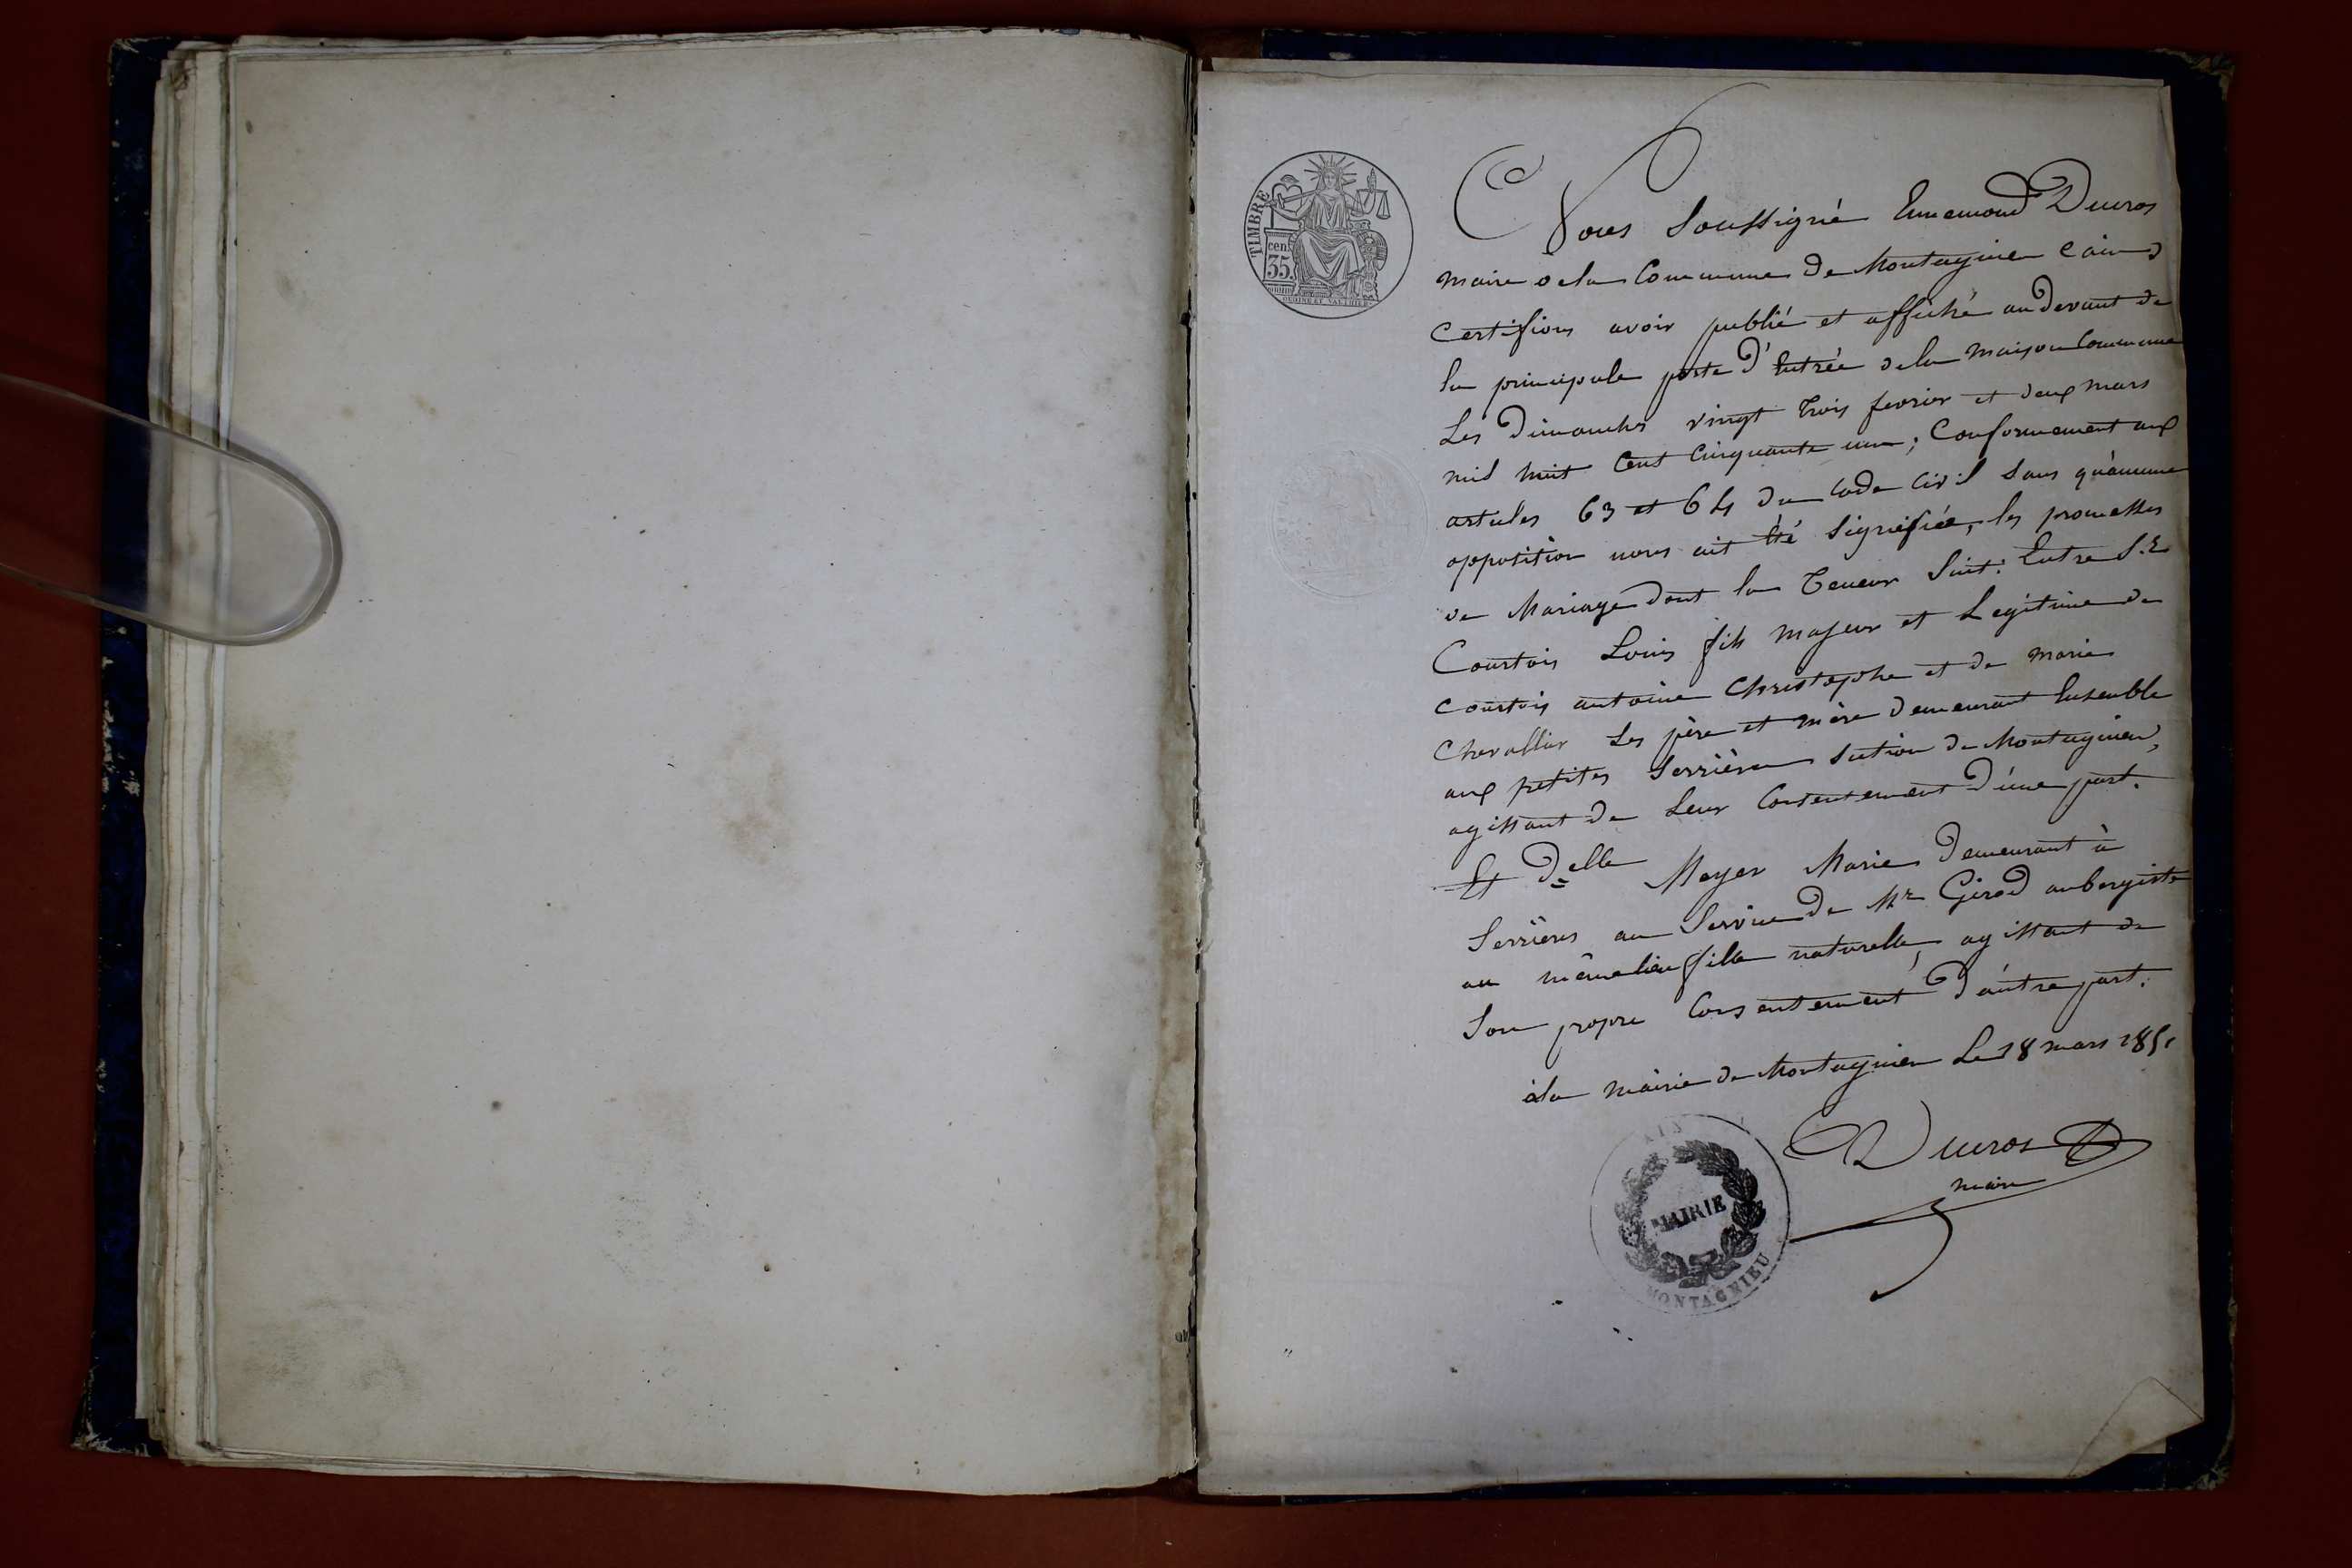 TIMBRE
cen.
35.
Nous Soussigné Ennemond Ducros
maire dela Commune De Montagnieu (ain)
certifions avoir publié et affiché au devant de
la principale porte d'Entrée dela maison Commune
Les Dimanches vingt trois fevrier et deux mars
mil huit Cent Cinquante un; Conformement aux
articles 63 et 64 du Code Civil Sans qu'aucune
opposition nous ait été Signifiée, les promesses
de Mariage dont la Teneur Suit: Entre S.r
Courtois Louis fils majeur et Legitime de
Courtois antoine Christophe et de marie
Chevallier Les père et mère demeurant Ensemble
aux petites Serrières Section de Montagnieu,
agissant de Leur Consentement d'une part.
Et D.elle Meyer Marie Demeurant à
Serrières au Service De Mr Girod aubergiste
au même lieu fille naturelle, agissant de
Son propre Consentement D'autre part.
à la mairie de Montagnieu Le 18 mars 1851
Ducros
maire
AIN
MAIRIE
MONTAGNIEU